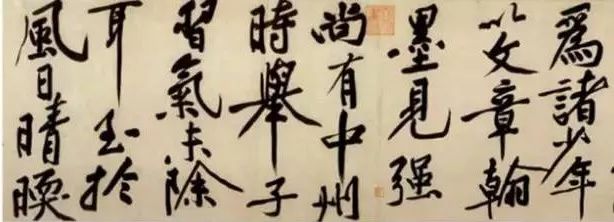 爲諸少年
以文章翰
墨見强
尚有中州
時舉子
習氣未除
耳至於
風日晴暖